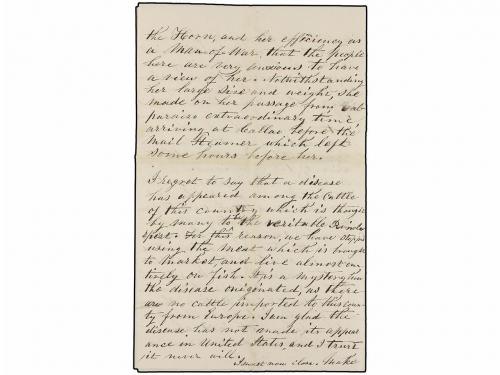 the Horn, and her efficiency as
a Man of War, that the people
here are very anxious to have
a view of her. Notwithstanding
her large size and weight, she
made on her passage from Val-
paraiso extraordinary time,
arriving at Callao before the
Mail Steamer which left
some hours before her.
I regret to say that a disease
has appeared among the Cattle
of this country which is thought
by many to be the veritable Rinde
pest. For this reason, we have stopped
using the meat which is brought
to market, and live almost en-
tirely on fish. It is a mystery how
the disease originated, as there
are no cattle imported to this coun-
ty from Europe. I am glad the
disease has not made its appear
ance in United States, and I trust
it never will.
I must now close. Make